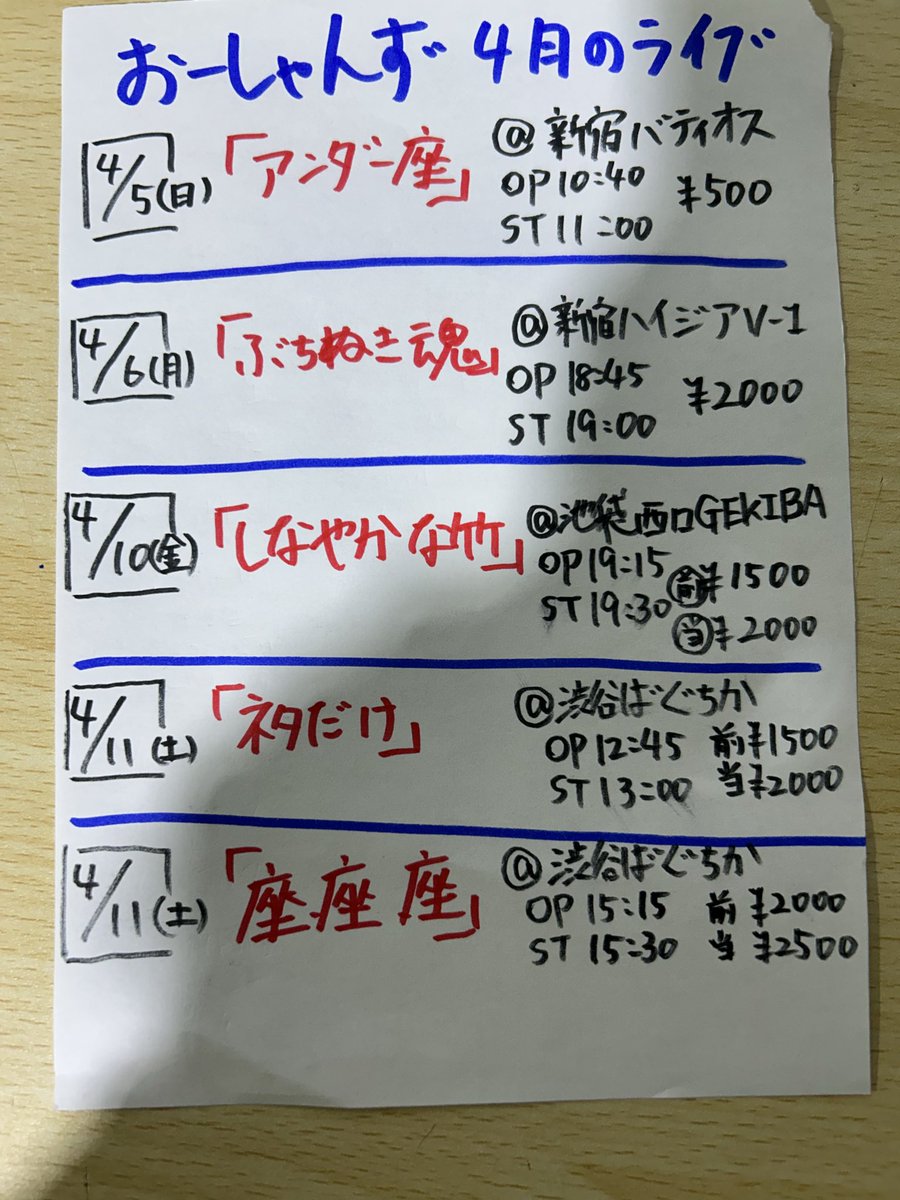 おーしゃんず 4月のライブ
4/5(日)「アンダー座」
@新宿バティオス
OP10:40 ¥500
ST11:00
4/6(月)「ぶちぬき魂」
@新宿ハイジアV-1
OP18:45 ¥2000
ST19:00
4/10(金)「しなやかな竹」
@池袋西口GEKIBA
OP19:15 前¥1500
ST19:30 当¥2000
4/11(土)「ネタだけ」
@渋谷ばぐちか
OP12:45 前¥1500
ST13:00 当¥2000
4/11(土)「座座座」
@渋谷ばぐちか
OP15:15 前¥2000
ST15:30 当¥2500